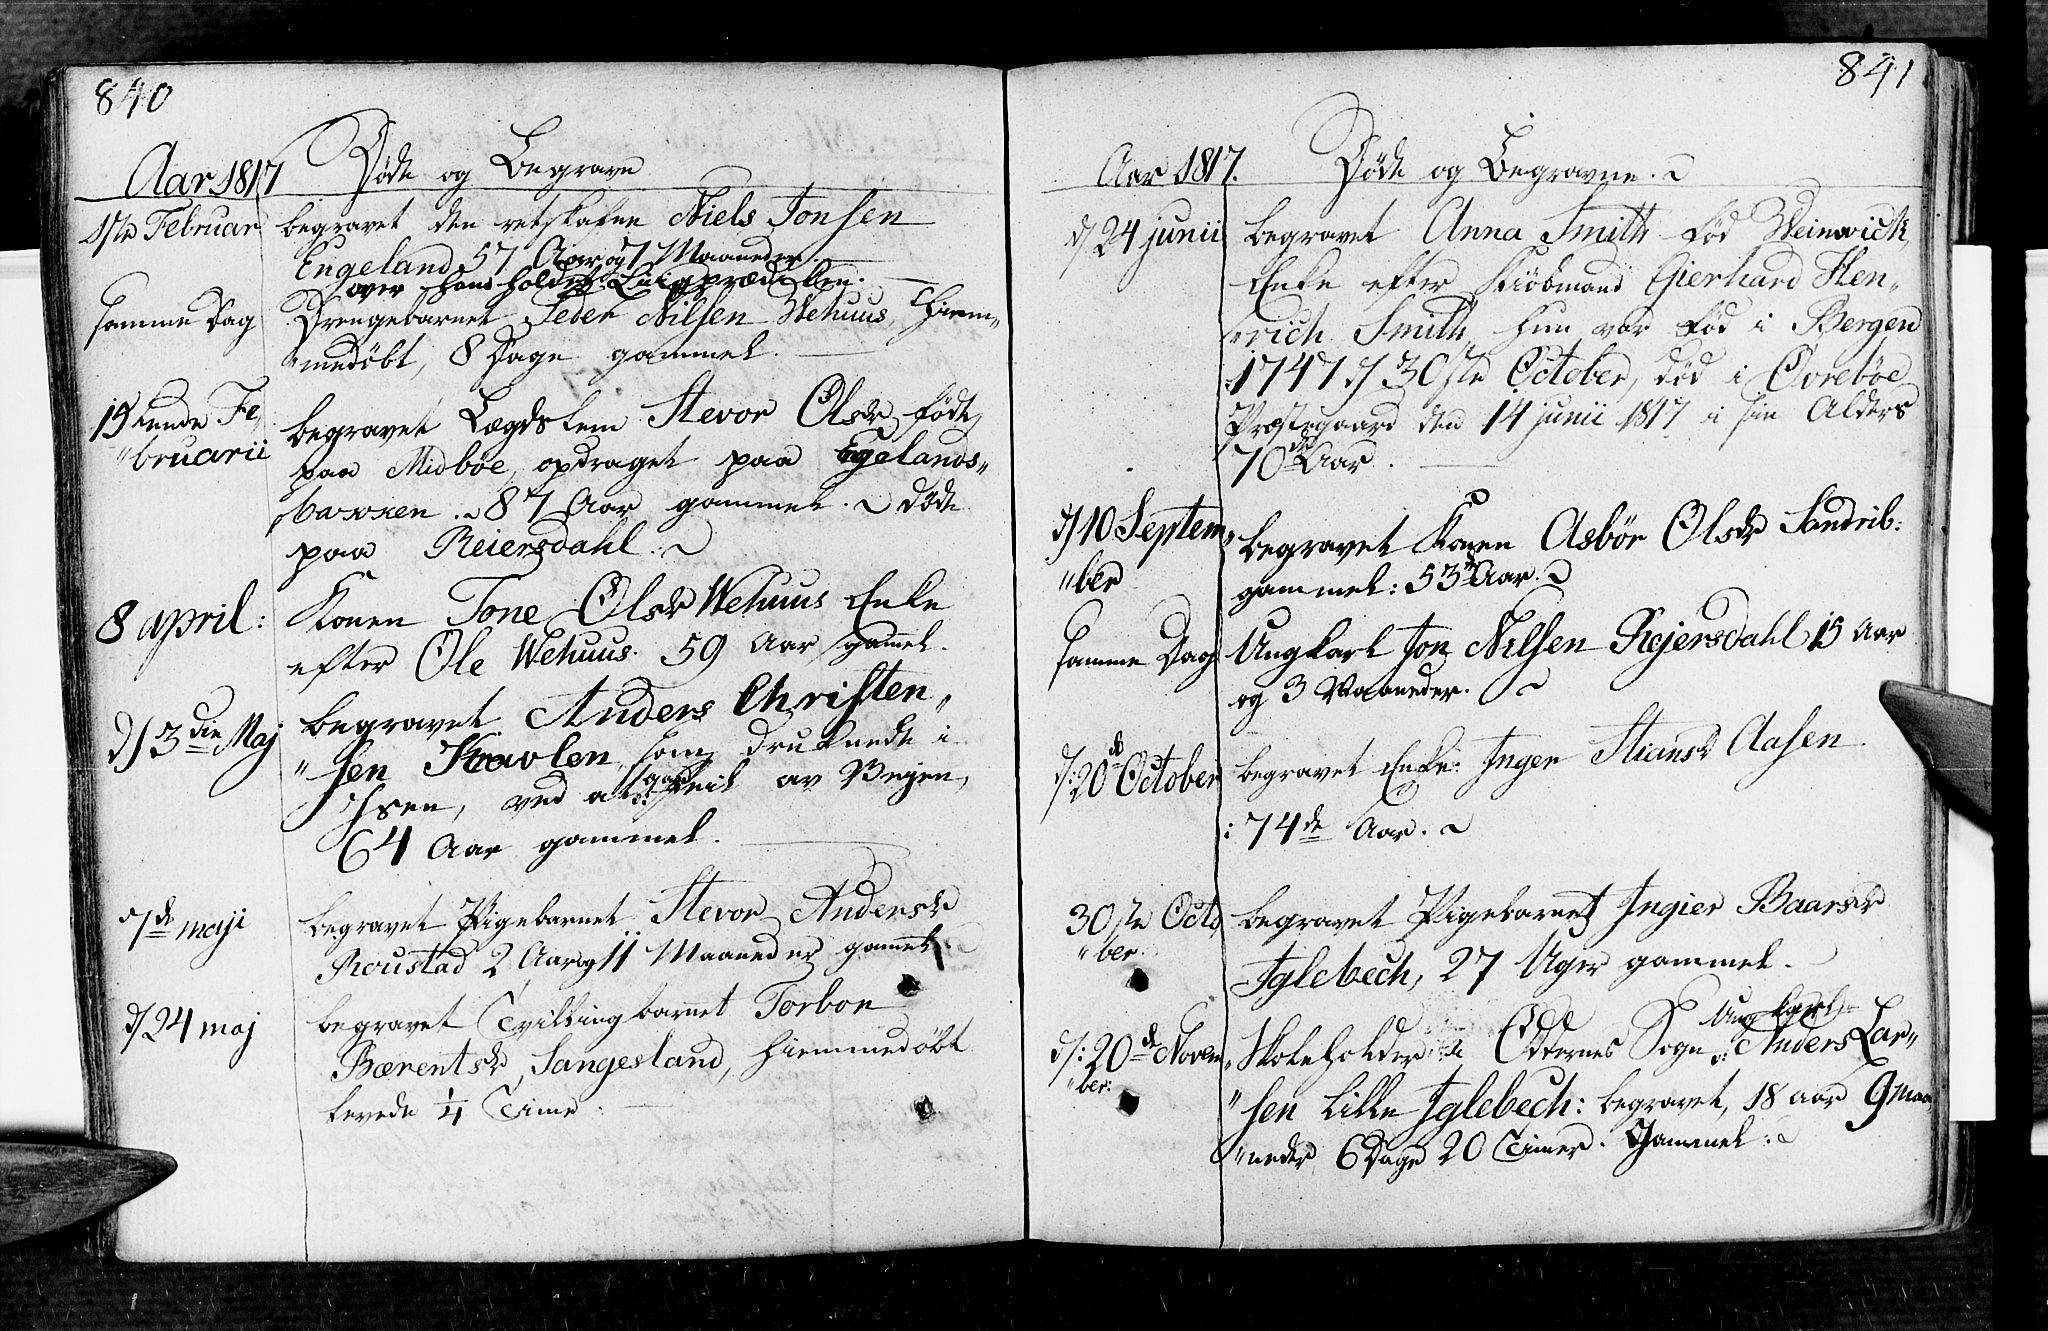 840
Aar 1817 Døde og Begrave
1ste Februar begravet den retskafne Niels Jonsen
Engeland 57 Aar og 7 Maaneder.
over ham holdet Liigprædiken.
samme Dag Drengebarnet Peder Nilsen Wehuus, Hiem„
„medöbt, 8 Dage gammel.
15tende Fe„ begravet Lægdslem Stevor Olsdr, født
„bruarii paa Midböe, opdraget paa Egelands„
barkken. 87 Aar gammel. døde
paa Reiersdahl.
8 april: Konen Tone Olsdr Wehuus Enke
efter Ole Wehuus. 59 Aar gam̄el.
d/ 3die Maj begravet Anders Christen„
„sen som druknede i
Isen, ved at gaae feil av Vejen,
64 Aar gammel.
7de maji begravet Pigebarnet Stevor Andersdr
Roustad 2 Aar og 11 Maaneder gam̄el.
d/ 24 maj begravet Tvillingbarnet Torbor
Bærentsdr, Sangesland, Hiemmedöbt
levede 1/4 Time.
841
Aar 1817. Döde og Begravne.
d/ 24 junii begravet Anna Smith fød Weinwich,
Enke efter Kiöbmand Gierhard Hen„
„rich Smith, hun var fød i Bergen
1747 d/ 30ste October, död i Øvreböe
Præstegaard den 14 junii 1817 i sin Alders
70de Aar.
d/ 10 Septem„ begravet Konen Asbör Olsdr Sandrib:
„ber gammel: 53 Aar.
samme Dag Ungkarl Jon Nilsen Rejersdahl 15 Aar
og 3 Maaneder.
d: 20de October begravet Enke: Inger Stiansdr Aasen
i 74de Aar.
30ste Octo„ begravet Pigebarnet Ingier Baarsdr
„ber. Iglebech, 27 Uger gammel.
Ungkarl
d: 20de Novem„ Skoleholder i Odde Sogn Anders Lar„
„ber: „sen Lille Iglebech: begravet, 18 aar 9 maa
„neder 6 Dage 20 Timer. Gammel: